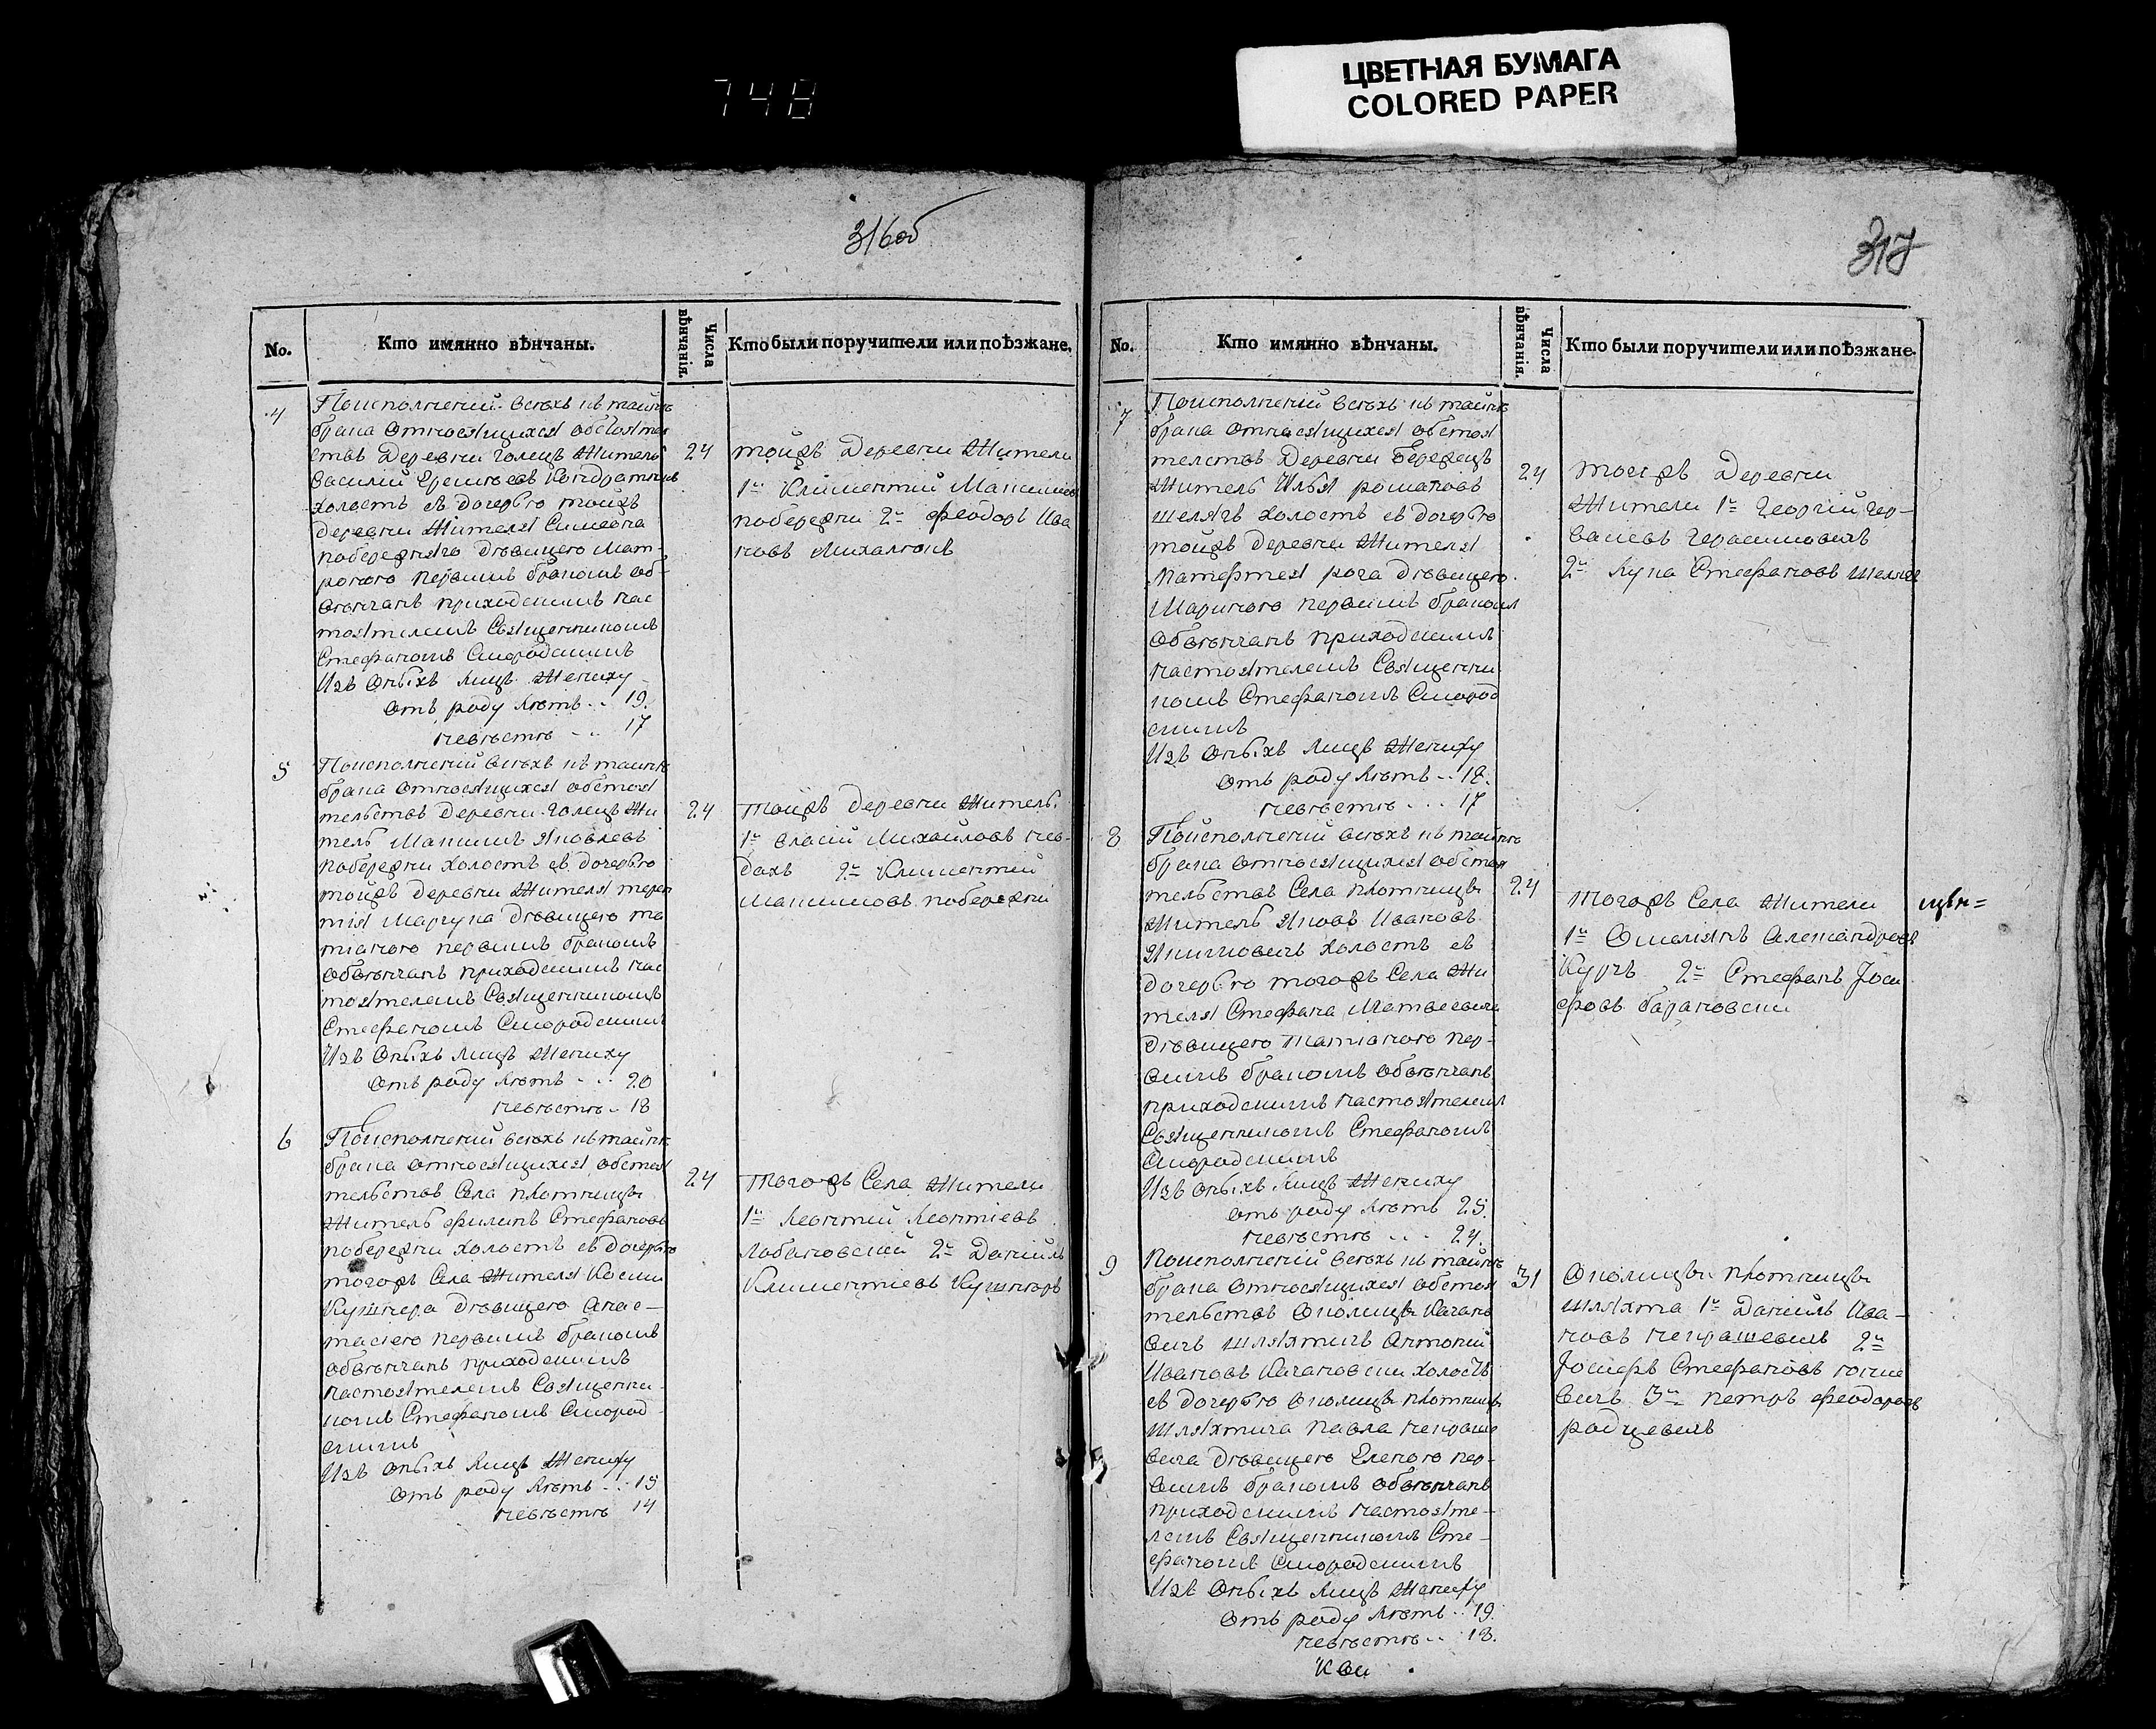 748
ЦВЕТНАЯ БУМАГА
COLORED PAPER
316об
No.
Кто имянно вѣнчаны.
Числа вѣнчанія.
Кто были поручители или поѣзжане.
4
Поисполненій всѣхъ къ тайнѣ
брака относящихся обстоятел
ствъ Деревни Голецъ Житель
Василий
холостъ съ дочерью тойжъ
деревни Жителя
побережняго Дѣвицею Мат-
роною первымъ бракомъ об-
вѣнчанъ приходскимъ нас
тоятелемъ Священникомъ
Стефаномъ Смородскимъ
Изъ Оныхъ Лицъ Жениху
Отъ роду Лѣтъ .. 19.
невѣстѣ .. 17
24
тойжъ Деревни Жители
1й Климентий Максимов
побережни 2й Феодоръ Ива
новъ
5
Поисполненій всѣхъ къ тайнѣ
брака относящихся обстоя
тельствъ Деревни Голецъ Жи
тель Максимъ Яковлевъ
побережни холостъ съ дочерью
тойжъ деревни Жителя терен
тія Марчука Дѣвицею та
тіаною первымъ бракомъ
обвѣнчанъ приходскимъ нас
тоятелемъ Священникомъ
Стефаномъ Смородскимъ
Изъ Оныхъ Лицъ Жениху
Отъ роду Лѣтъ ... 20
невѣстѣ .. 18
24
тойжъ Деревни Житель
1й Власій Михайловъ нев-
дахъ 2й Климентий
Максимовъ побережни
6
Поисполненій всѣхъ къ тайнѣ
брака относящихся обстоя
тельствъ Села плотницы
Житель филипъ Стефановъ
побережни холостъ съ дочерью
тогожъ Села Жителя Космы
Кушнера Дѣвицею Анас-
тасіею первымъ бракомъ
обвѣнчанъ приходскимъ
настоятелемъ Священни-
комъ Стефаномъ Смород-
скимъ
Изъ Оныхъ Лицъ Жениху
Отъ роду Лѣтъ ... 15
невѣстѣ 14
24
тогожъ Села Жители
1й Леонтий Леонтіевъ
Лобановский 2й Даніилъ
Климентіевъ Кушнѣръ
317
No.
Кто имянно вѣнчаны.
Числа вѣнчанія.
Кто были поручители или поѣзжане.
7
Поисполненій всѣхъ къ тайнѣ
брака относящихся обстоя
телствъ Деревни Бережецъ
Житель Илья романовъ
шелягъ холостъ съ дочерью
тойжъ деревни Жителя
рога Дѣвицею
Мариною первымъ бракомъ
обвѣнчанъ приходскимъ
настоятелемъ Священни
комъ Стефаномъ Смород
скимъ
Изъ Оныхъ Лицъ Жениху
Отъ роду Лѣтъ .. 18.
невѣстѣ ... 17
24
тогожъ Деревни
Жители 1й Георгій гер-
васіевъ Герасимовичъ
2й Лука Стефановъ шелягъ
8
Поисполненій всѣхъ къ тайнѣ
брака относящихся обстоя
тельствъ Села плотницы
Житель Яковъ Ивановъ
холостъ съ
дочерью тогожъ Села Жи
теля Стефана Матвеевича
Дѣвицею Татіаною пер-
вымъ бракомъ обвѣнчанъ
приходскимъ настоятелем
Священникомъ Стефаномъ
Смородскимъ
Изъ Оныхъ Лицъ Жениху
отъ роду Лѣтъ 25.
невѣстѣ ... 24.
24
тогожъ Села Жители
1й Омелянъ Александров
Курчъ 2й Стефанъ Іоси
фовъ барановски
9
Поисполненій всѣхъ къ тайнѣ
брака относящихся обстоя
тельствъ Околицы Качано
вичъ шляхтичъ Антоний
Ивановъ Качановски холостъ
съ дочерью околицы плотницы
шляхтича Павла Некраше
вича Дѣвицею Еленою пер-
вымъ бракомъ обвѣнчанъ
приходскимъ настояте-
лемъ Священникомъ Сте-
фаномъ Смородскимъ
Изъ Оныхъ Лицъ Жениху
Отъ роду Лѣтъ .. 19.
невѣстѣ .. 18.
31
Околицы плотницы
шляхта 1й Даніилъ Ива-
новъ некрашевичъ 2й
Іосифъ Стефановъ
вичъ 3й петръ феодоровъ
родцевичъ